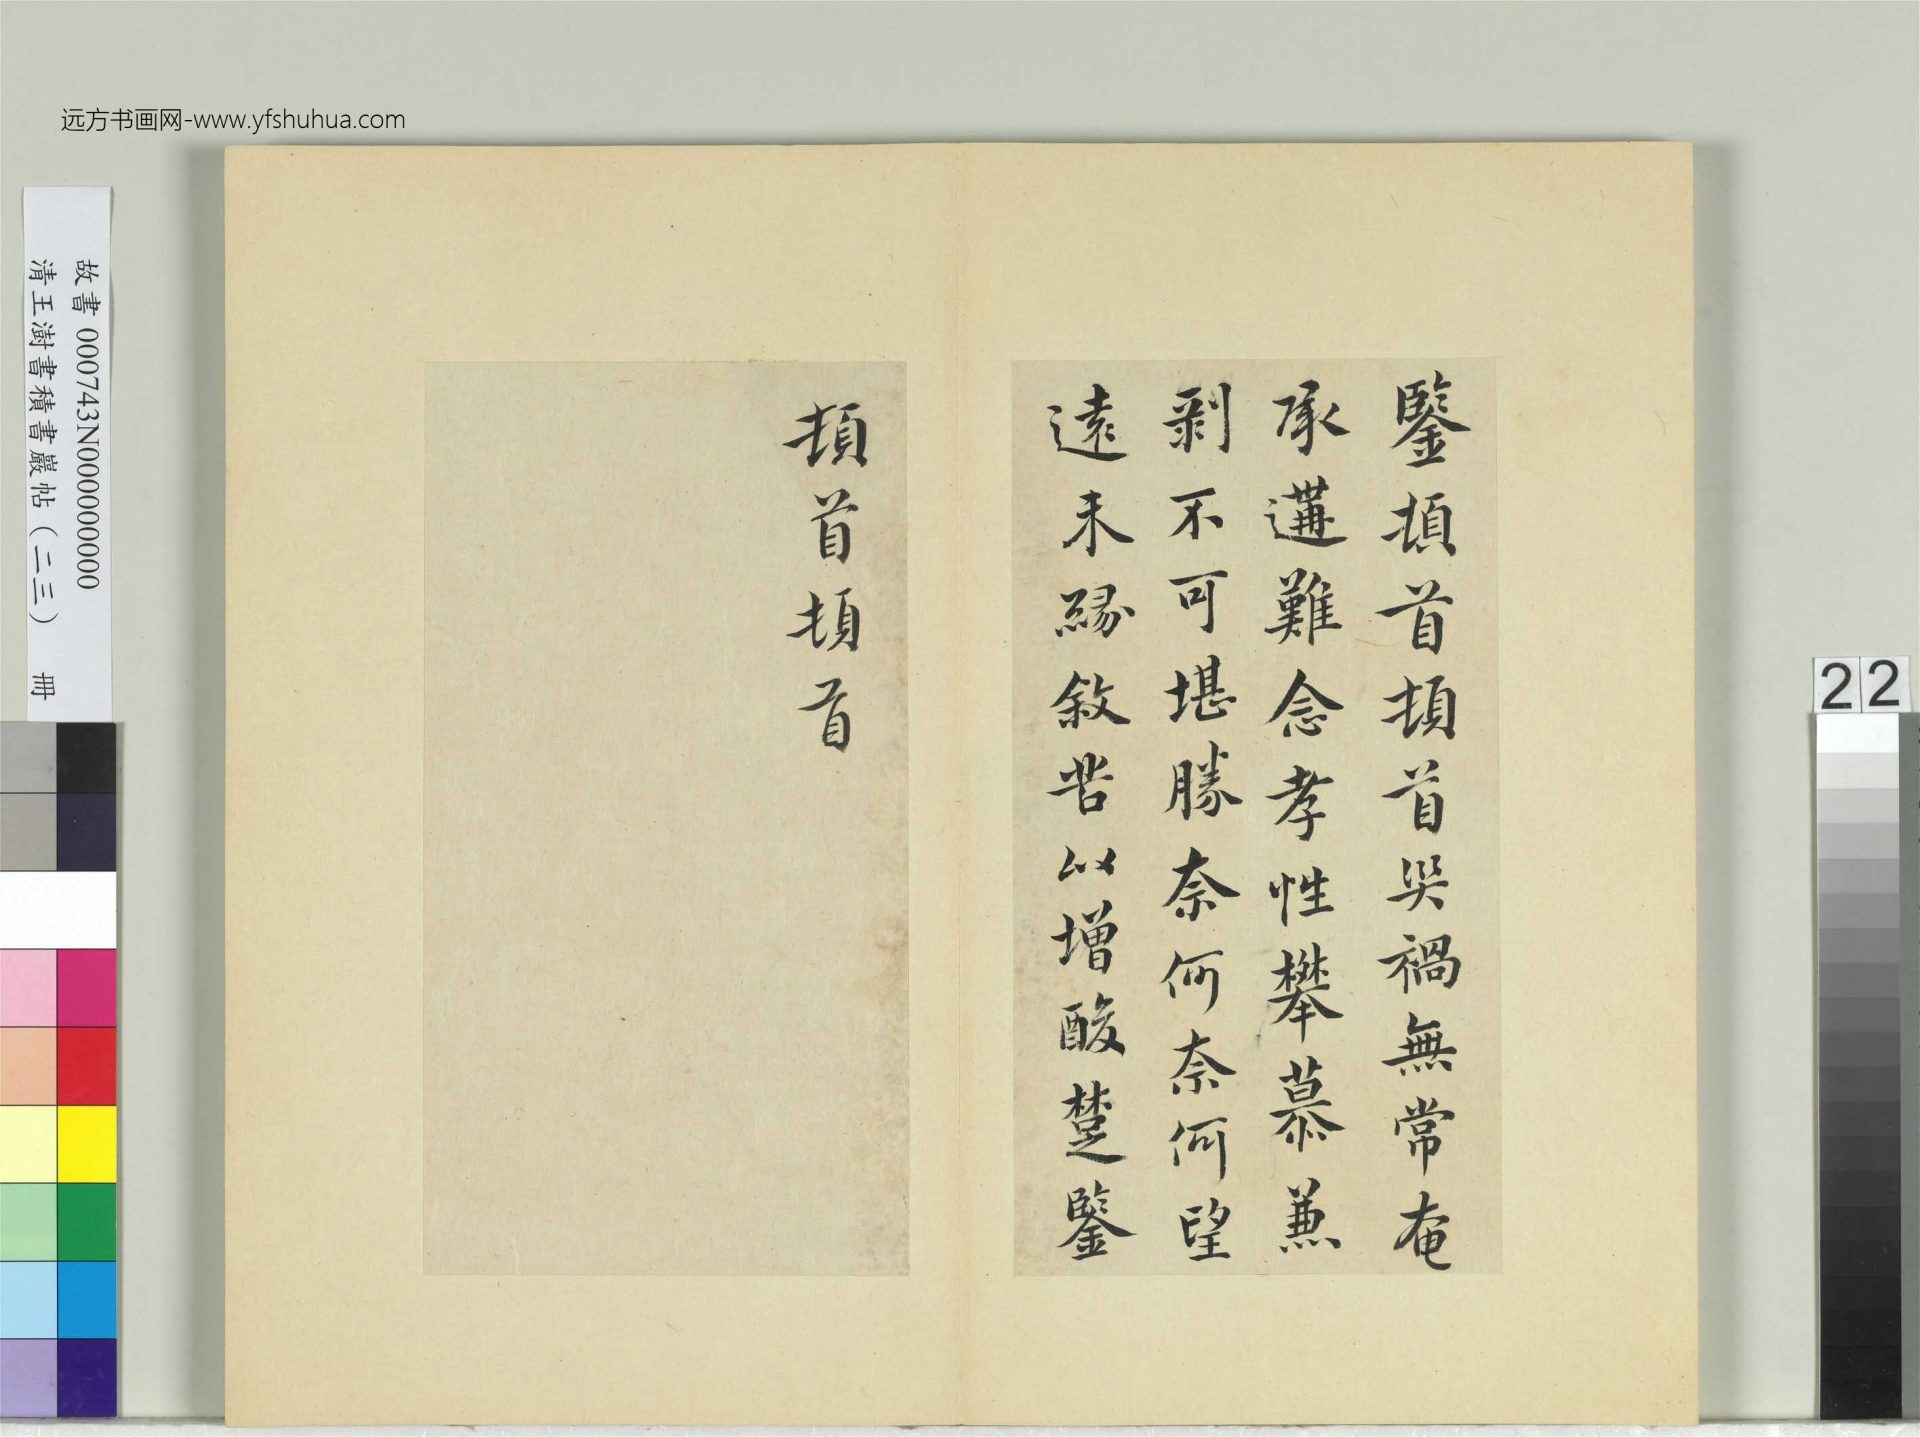 远方书画网-www.yfshuhua.com
故書 000743N000000000
清王澍書積書巖帖（二三） 冊
22
鑒頓首頓首哭禍無常奄
承遘難念孝性攀慕兼
剝不可堪勝奈何奈何望
遠未緣敘苦以增酸楚鑒
頓首頓首